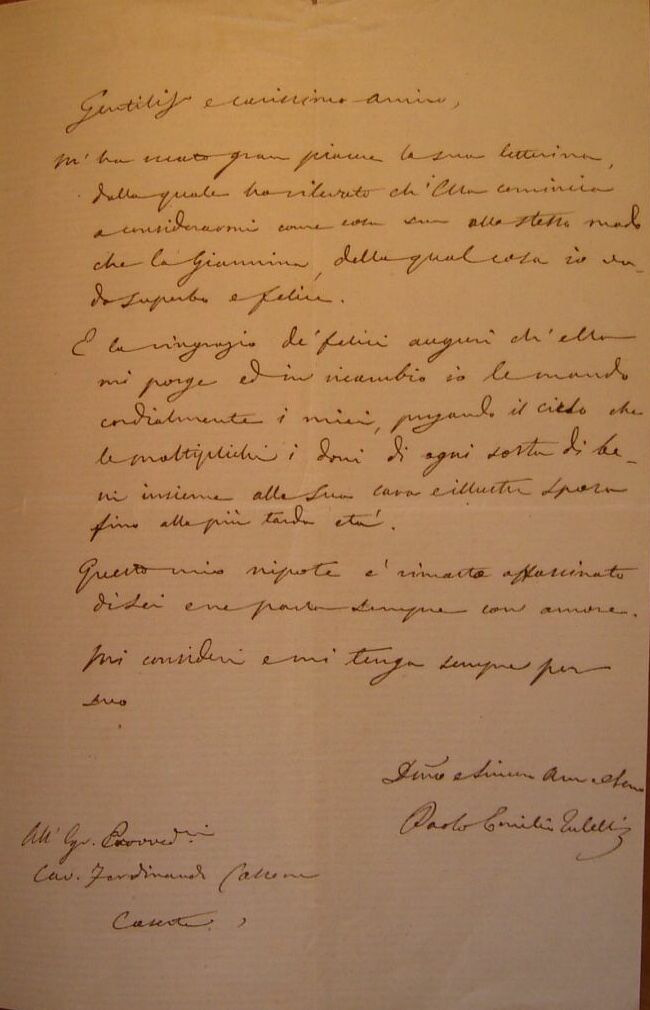 Gentiliss e carissimo amico,
M' ha recato gran piacere la sua letterina,
dalla quale ho rilevato ch' Ella comincia
a considerarmi come cosa sua allo stesso modo
che la Giannina, della qual cosa io va-
do superbo e felice.
E la ringrazio de' felici auguri ch' ella
mi porge ed in ricambio io le mando
cordialmente i miei, pregando il cielo che
le moltiplichi i doni di ogni sorta di be-
ni insieme alla sua cara e illustre sposa
fino alla più tarda età.
Questo mio nipote è rimasto affascinato
di Lei e ne parla sempre con amore.
Mi consideri e mi tenga sempre per
suo
Paolo Emilio
All'
Cav. Ferdinando
Caserta